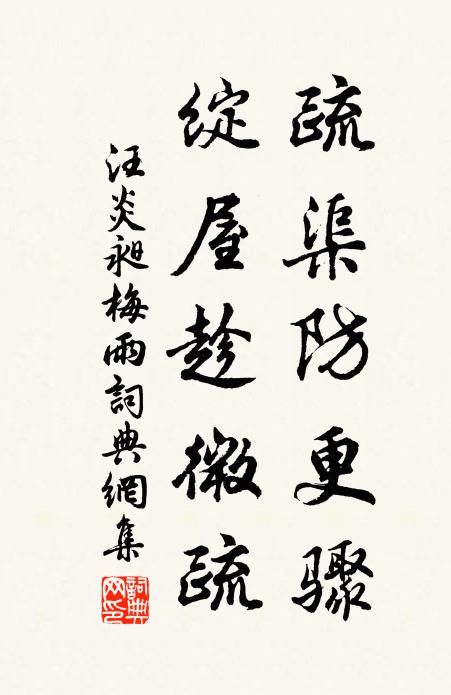 疏渠防更驟
綻屋趁微疏
汪炎昶梅雨詞典網集
詞典網印